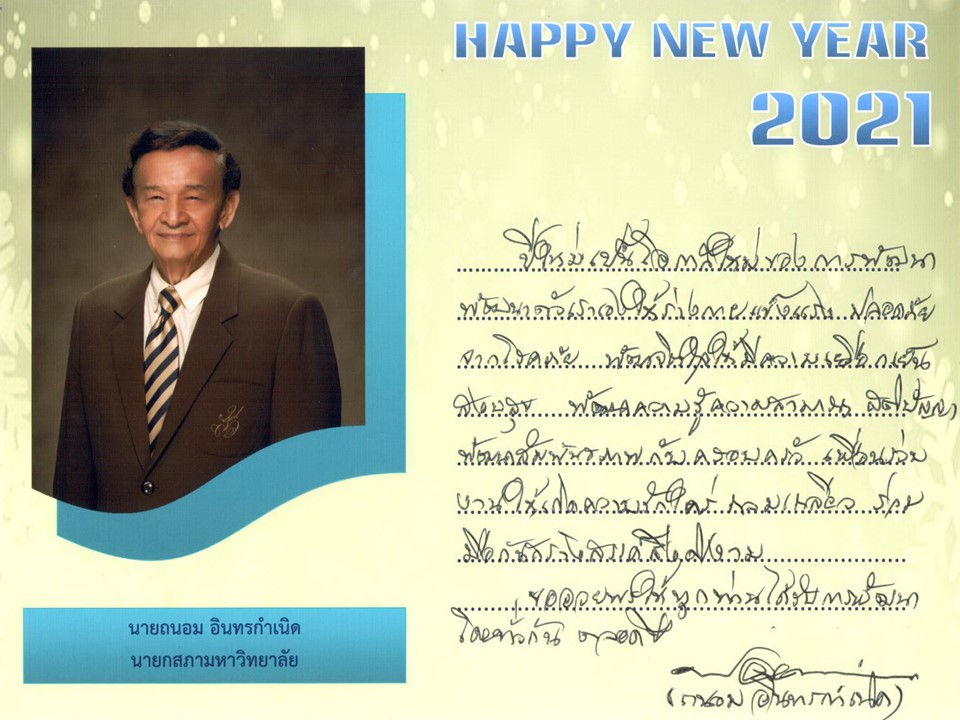 HAPPY NEW YEAR
2021
ปีใหม่เป็นโอกาสใหม่ของการพัฒนา
พัฒนาตัวเราเองให้ร่างกายแข็งแรง ปลอดภัย
จากโรคภัย พัฒนจิตใจให้มีความเยือกเย็น
สงบสุข พัฒนาความรู้ความสามารถ สติปัญญา
พัฒนาสัมพันธภาพกับครอบครัว เพื่อนร่วม
งานให้เกิดความรักใคร่ กลมเกลียว ร่วม
มือกันสร้างสรรค์สิ่งดีงาม
ขออวยพรให้ทุกท่านได้รับการพัฒนา
โดยทั่วกัน ตลอดปี
(ถนอม อินทรกำเนิด)
นายถนอม อินทรกำเนิด
นายกสภามหาวิทยาลัย